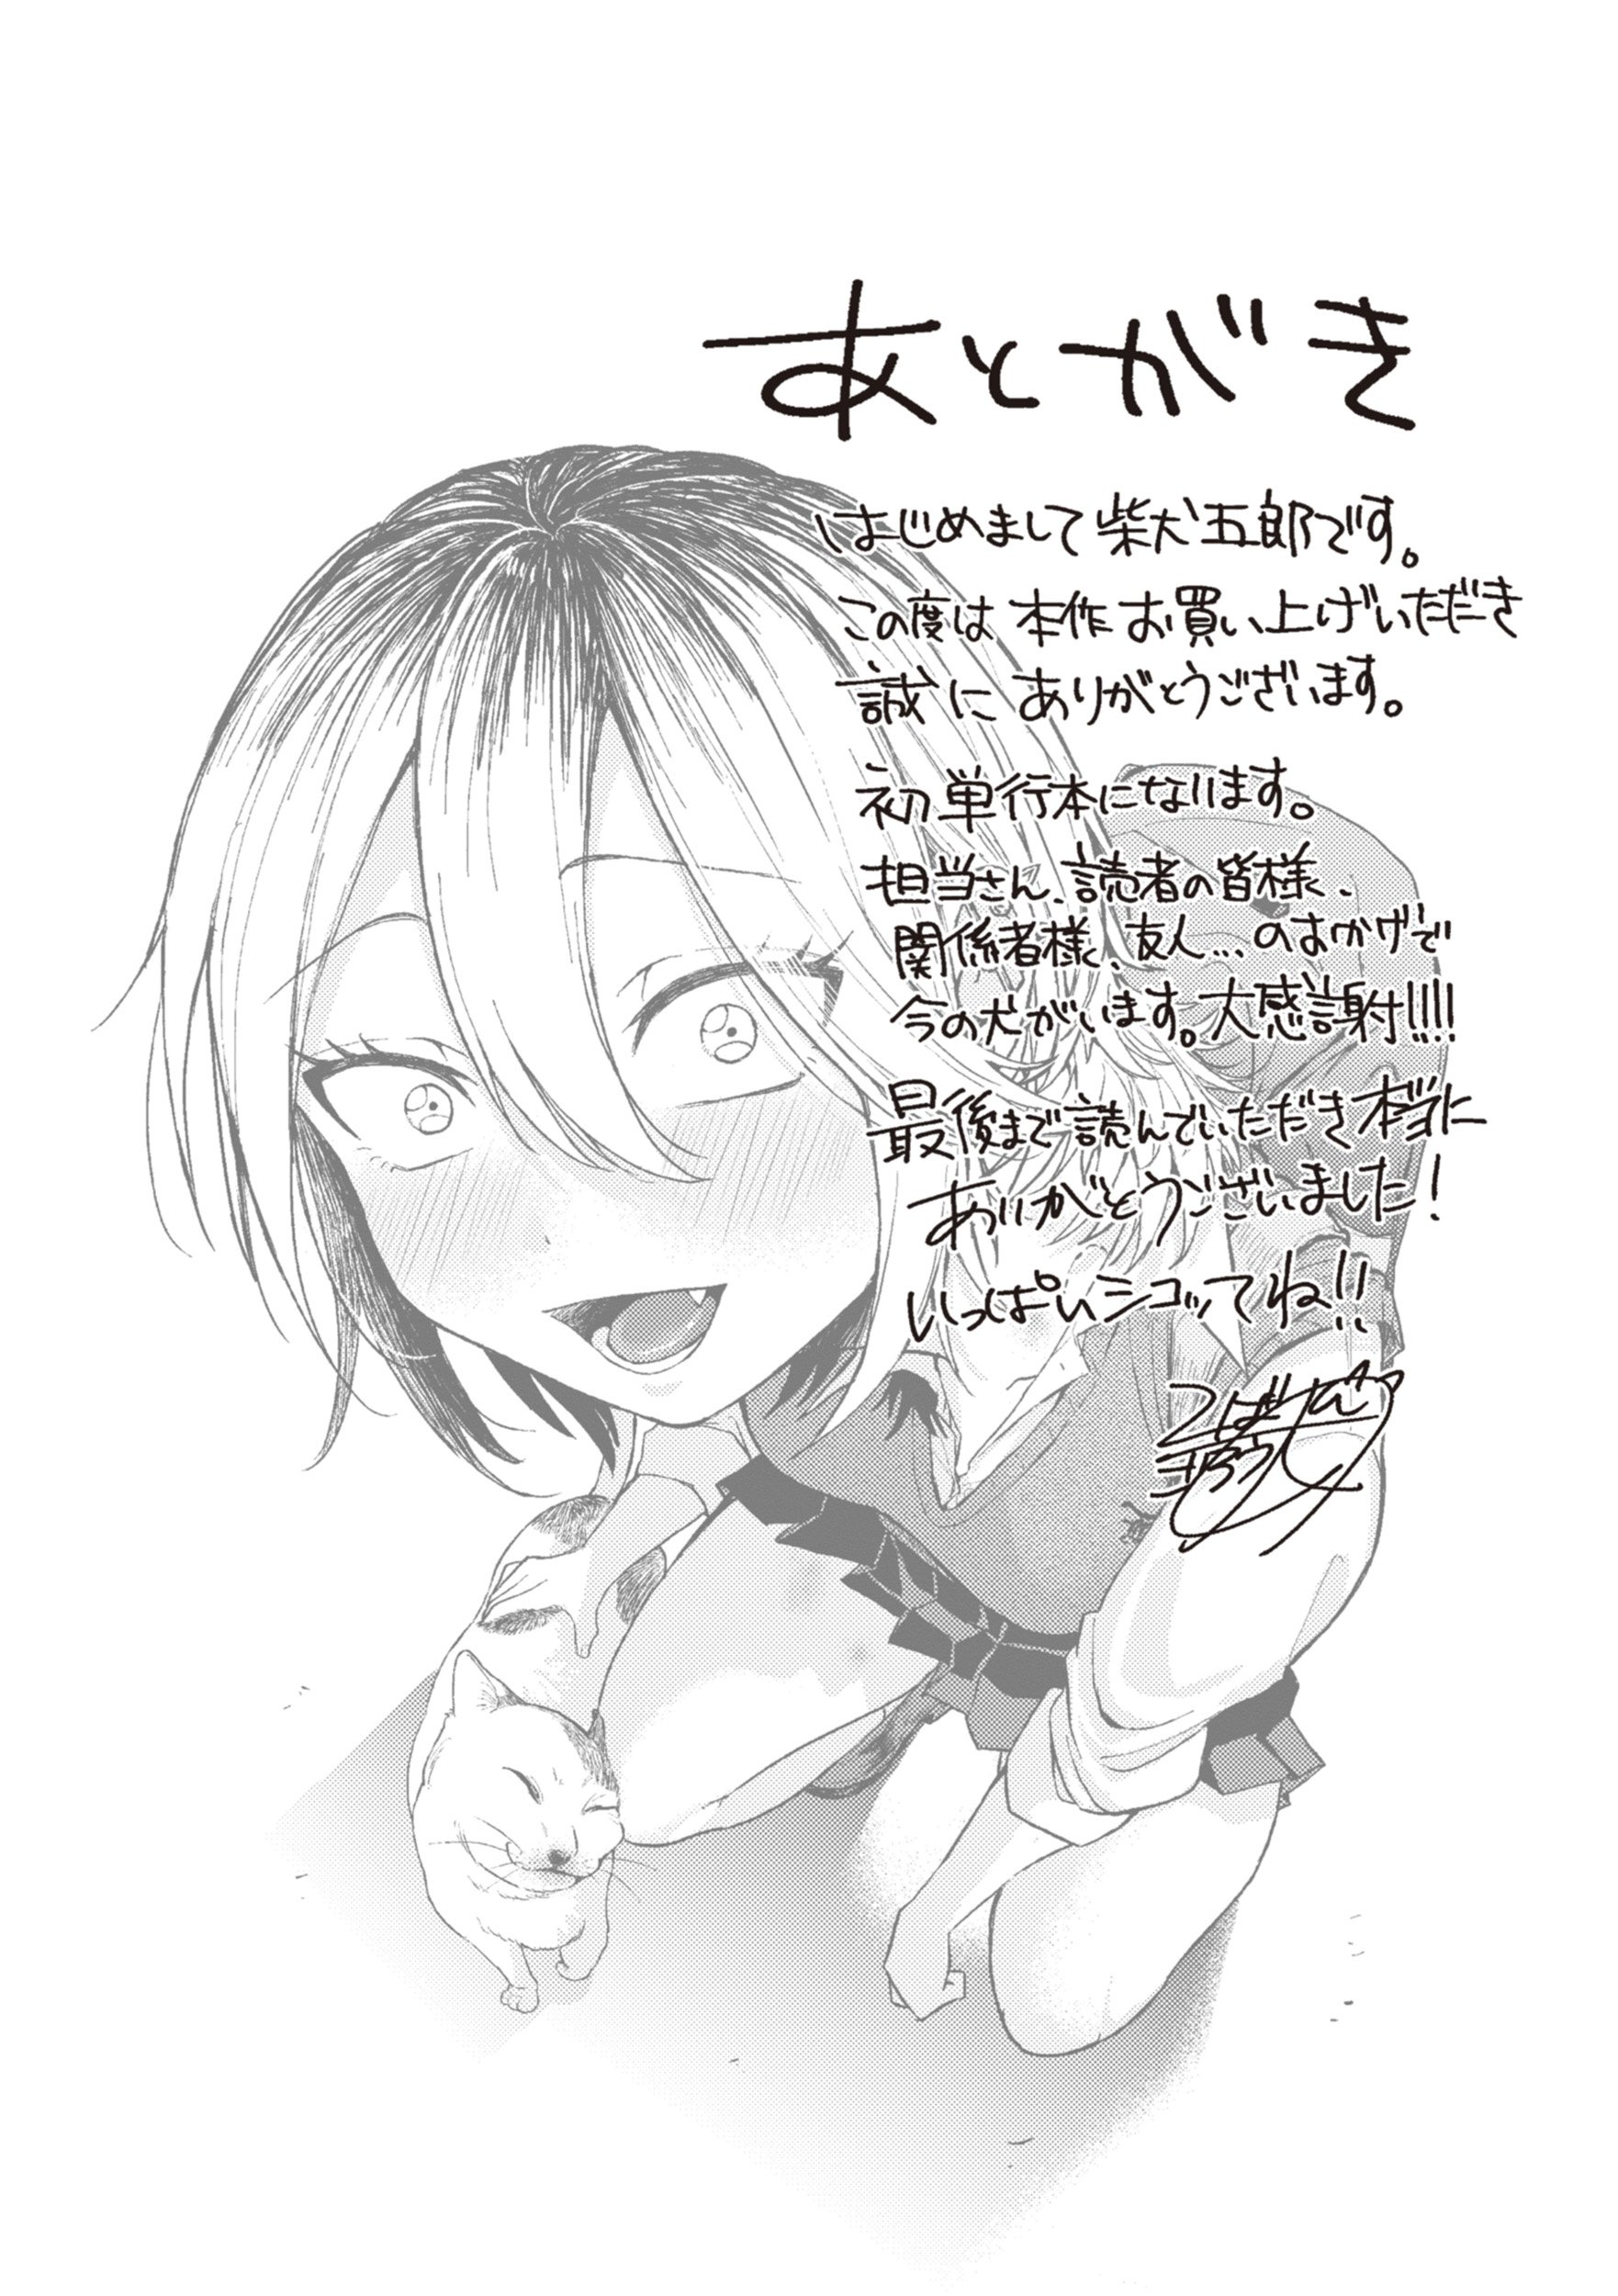 あとがき
はじめまして柴犬五郎です。
この度は本作お買い上げいただき
誠にありがとうございます。
初単行本になります。
担当さん、読者の皆様、
関係者様、友人…のおかげで
今の犬がいます。大感謝!!!!
最後まで読んでいただき本当に
ありがとうございました!
いっぱいシコッてね!!